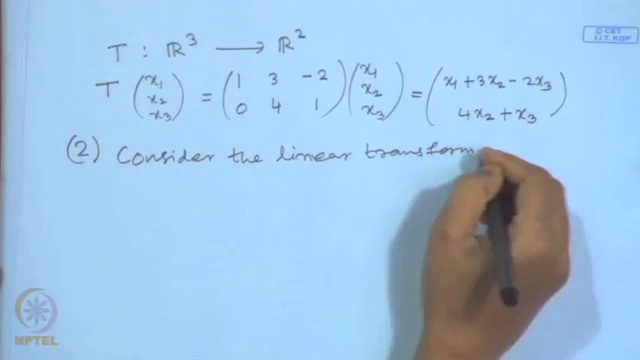 T : ℝ³ ⟶ ℝ²
T (x₁ x₂ x₃) = (1 3 -2 / 0 4 1) (x₁ x₂ x₃) = (x₁ + 3x₂ - 2x₃ / 4x₂ + x₃)
(2) Consider the linear transform
© CET
I.I.T. KGP
NPTEL